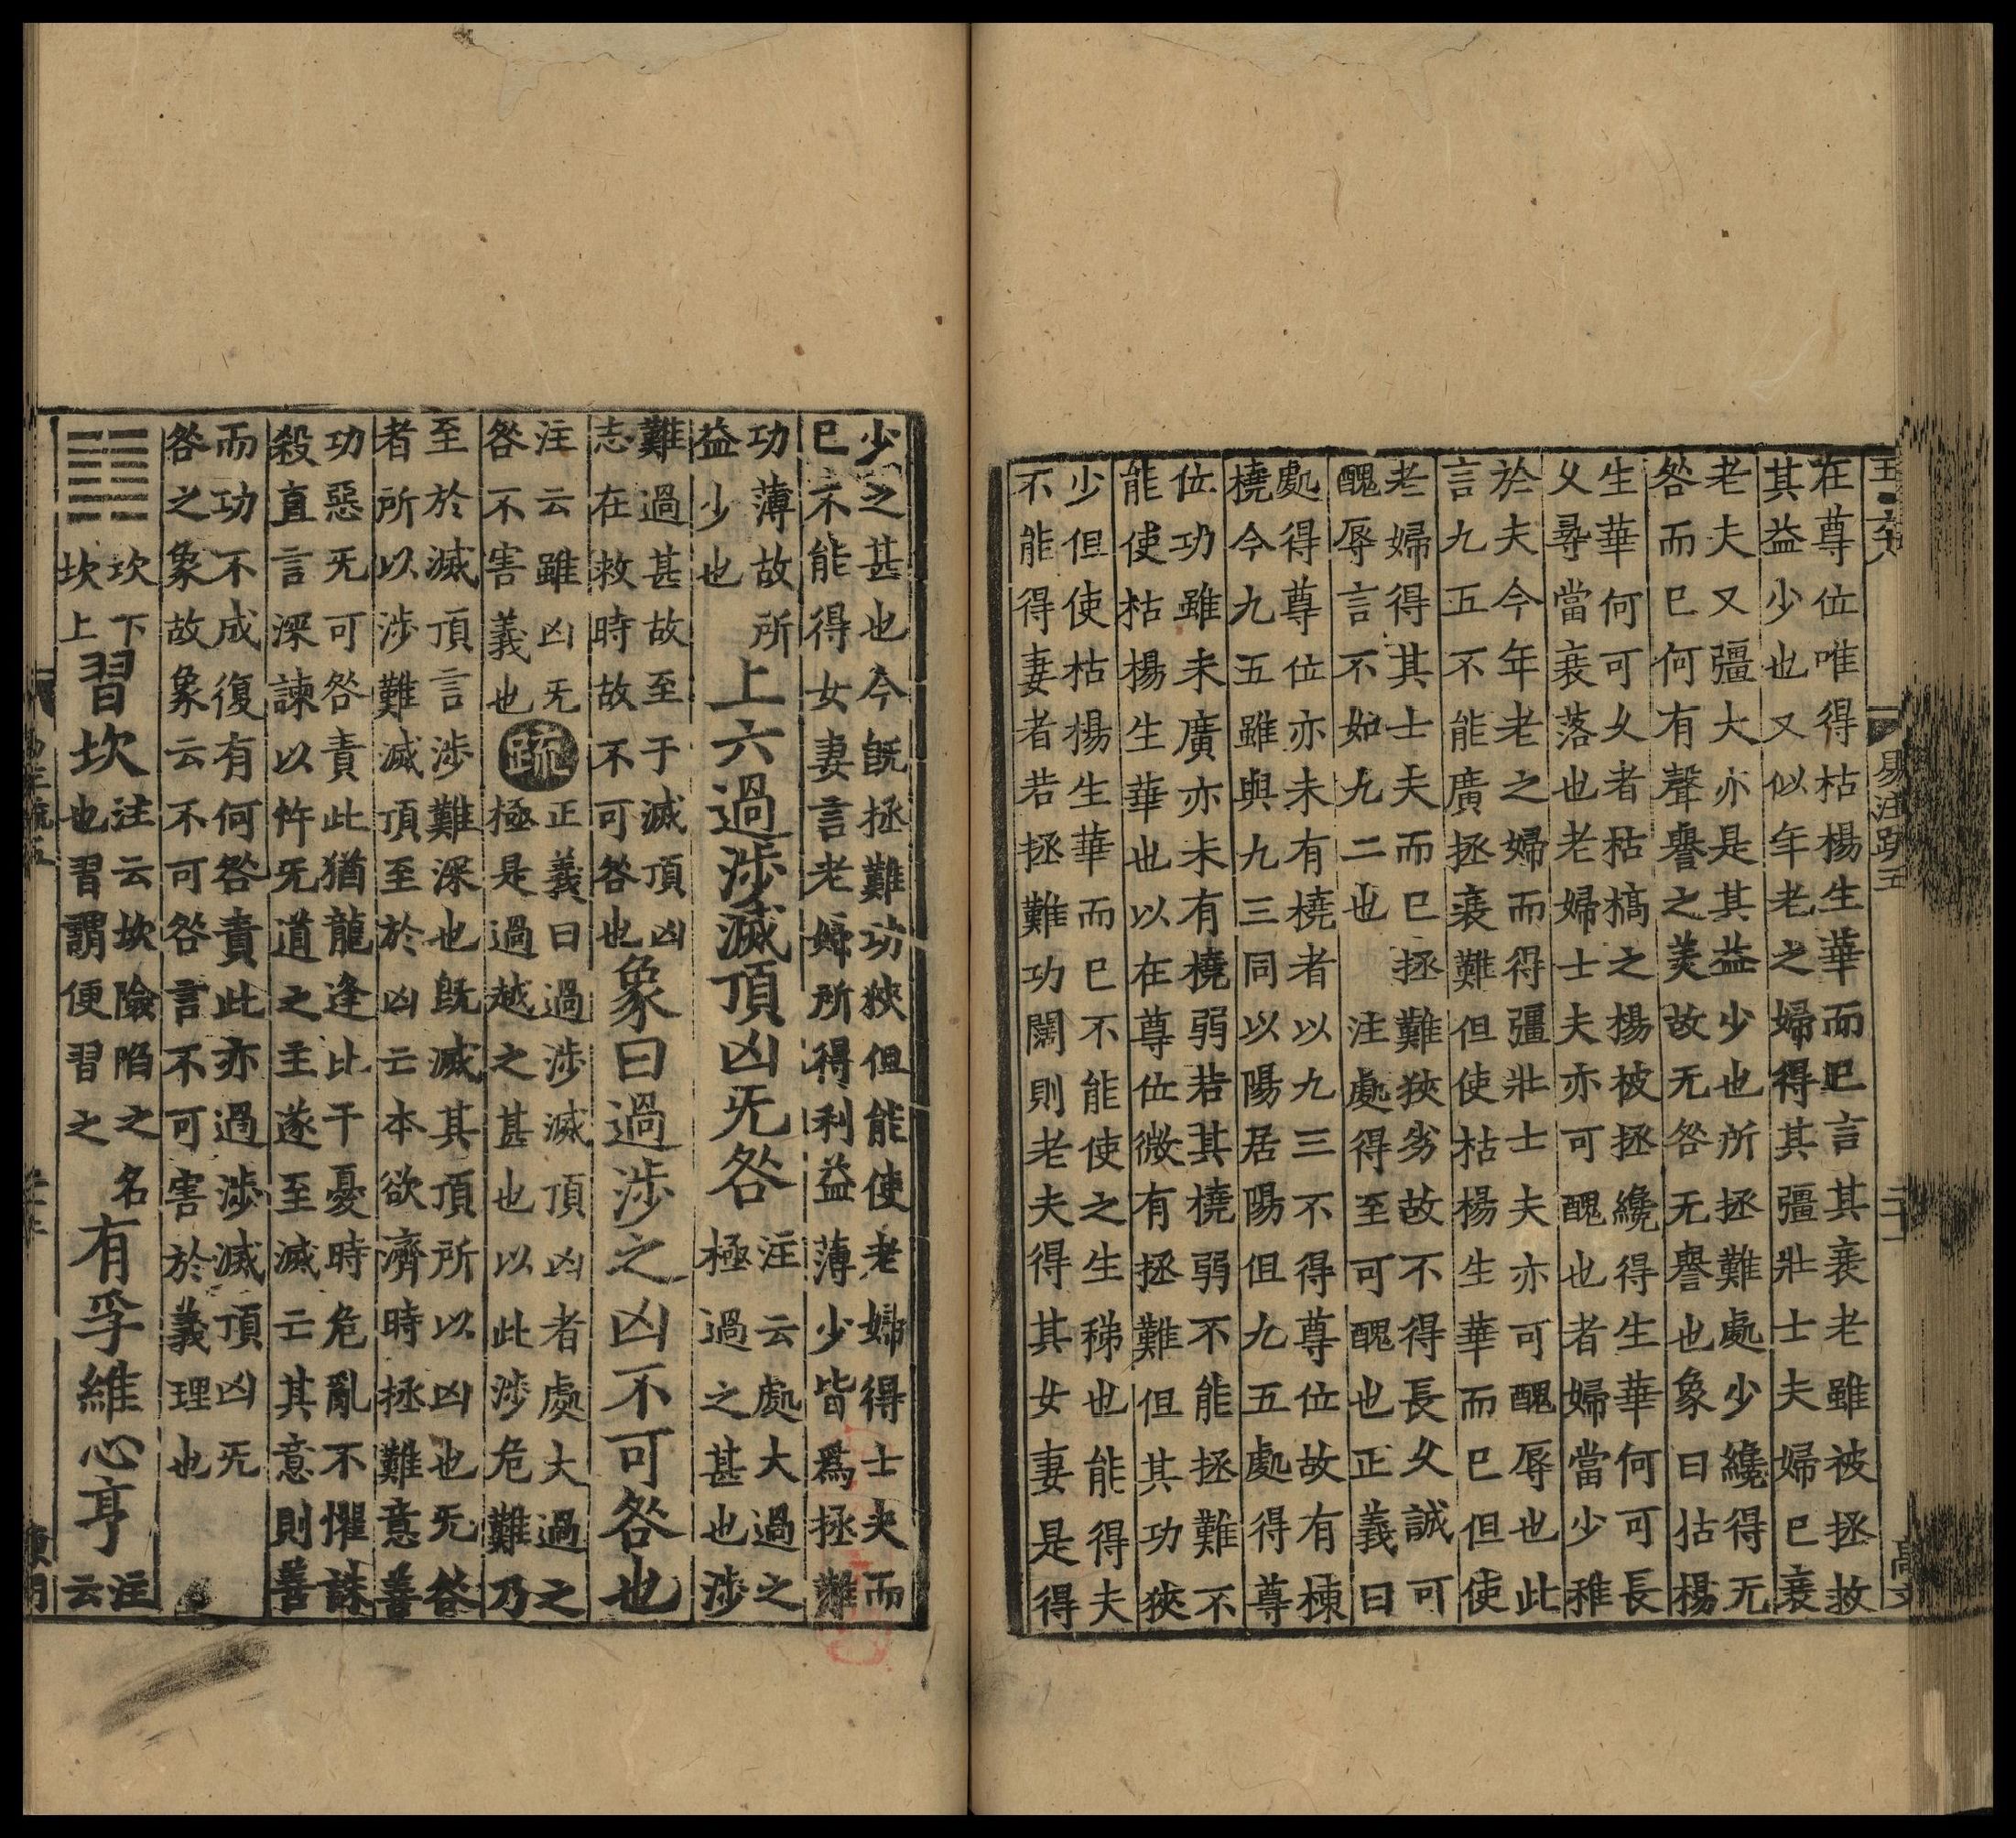 易注疏五
二十一
高文
在尊位唯得枯楊生華而已言其衰老雖被拯救
其益少也又似年老之婦得其彊壯士夫婦已衰
老夫又彊大亦是其益少也所拯難處少纔得无
咎而已何有聲譽之美故无咎无譽也象曰枯楊
生華何可久者枯槁之楊被拯纔得生華何可長
久尋當衰落也老婦士夫亦可醜也者婦當少稚
於夫今年老之婦而得彊壯士夫亦可醜辱也此
言九五不能廣拯衰難但使枯楊生華而已但使
老婦得其士夫而已拯難狹劣故不得長久誠可
醜辱言不如九二也 注處得至可醜也正義曰
處得尊位亦未有橈者以九三不得尊位故有棟
橈今九五雖與九三同以陽居陽但九五處得尊
位功雖未廣亦未有橈弱若其橈弱不能拯難不
能使枯楊生華也以在尊位微有拯難但其功狹
少但使枯楊生華而已不能使之生稊也能得夫
不能得妻者若拯難功闊則老夫得其女妻是得
少之甚也今旣拯難功狹但能使老婦得士夫而
已不能得女妻言老婦所得利益薄少皆爲拯難
功薄故所
益少也
上六過涉滅頂凶无咎
注云處大過之
極過之甚也涉
難過甚故至于滅頂凶
志在救時故不可咎也
象曰過涉之凶不可咎也
注云雖凶无
咎不害義也
疏
正義曰過涉滅頂凶者處大過之
極是過越之甚也以此涉危難乃
至於滅頂言涉難深也旣滅其頂所以凶也无咎
者所以涉難滅頂至於凶亡本欲濟時拯難意善
功惡无可咎責此猶龍逢比干憂時危亂不懼誅
殺直言深諫以忤无道之主遂至滅亡其意則善
而功不成復有何咎責此亦過涉滅頂凶无
咎之象故象云不可咎言不可害於義理也
坎下
坎上
習坎
注云坎險陷之名
也習謂便習之
有孚維心亨
注
云